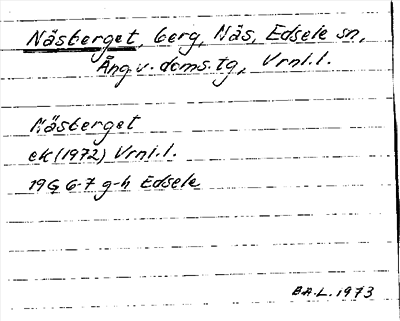 Näsberget, berg, Näs, Edsele sn,
Ång.v. doms.tg, Vrnl.l.
Näsberget
ek (1972) Vrnl.l.
19G 6-7 g-h Edsele
B.A.L. 1973